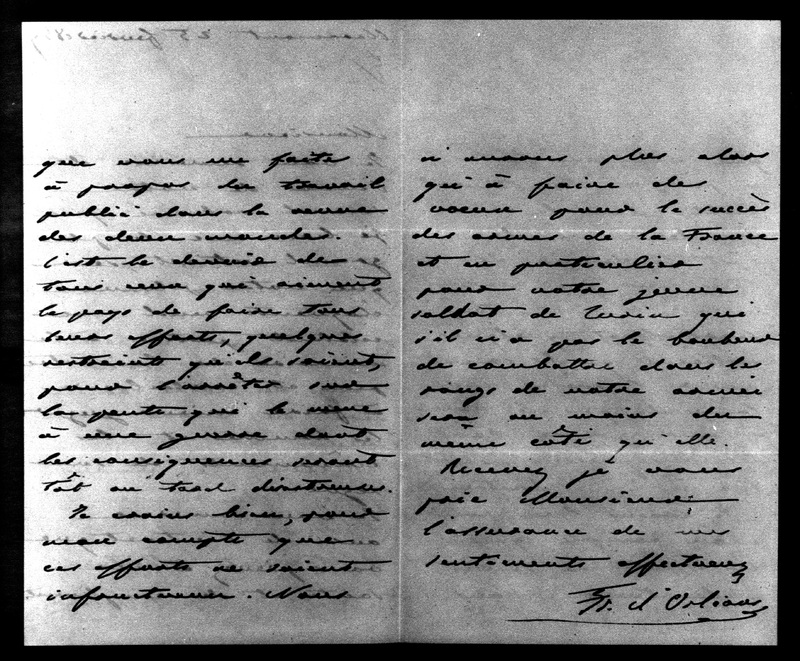 que vous me faites
à propos du travail
publié dans la revue
des deux mondes.
C'est le devoir de
tous ceux qui aiment
le pays de faire tous
leurs efforts, quelques
restreints qu'ils soient,
pour l'arrêter sur
la pente qui le mène
à une guerre dont
les conséquences seront
tôt ou tard désastreuses.
Je crains bien, pour
mon compte que
ces efforts ne soient
infructueux. Nous
n'aurons plus alors
qu'à faire des
voeux pour le succès
des armes de la France
et en particulier
pour votre jeune
soldat de qui
s'il n'a pas le bonheur
de combattre dans les
rangs de notre armée
sera au moins du
même côté qu'elle.
Recevez je vous
prie Monsieur
l'assurance de mes
sentiments affectueux
d'Orléans